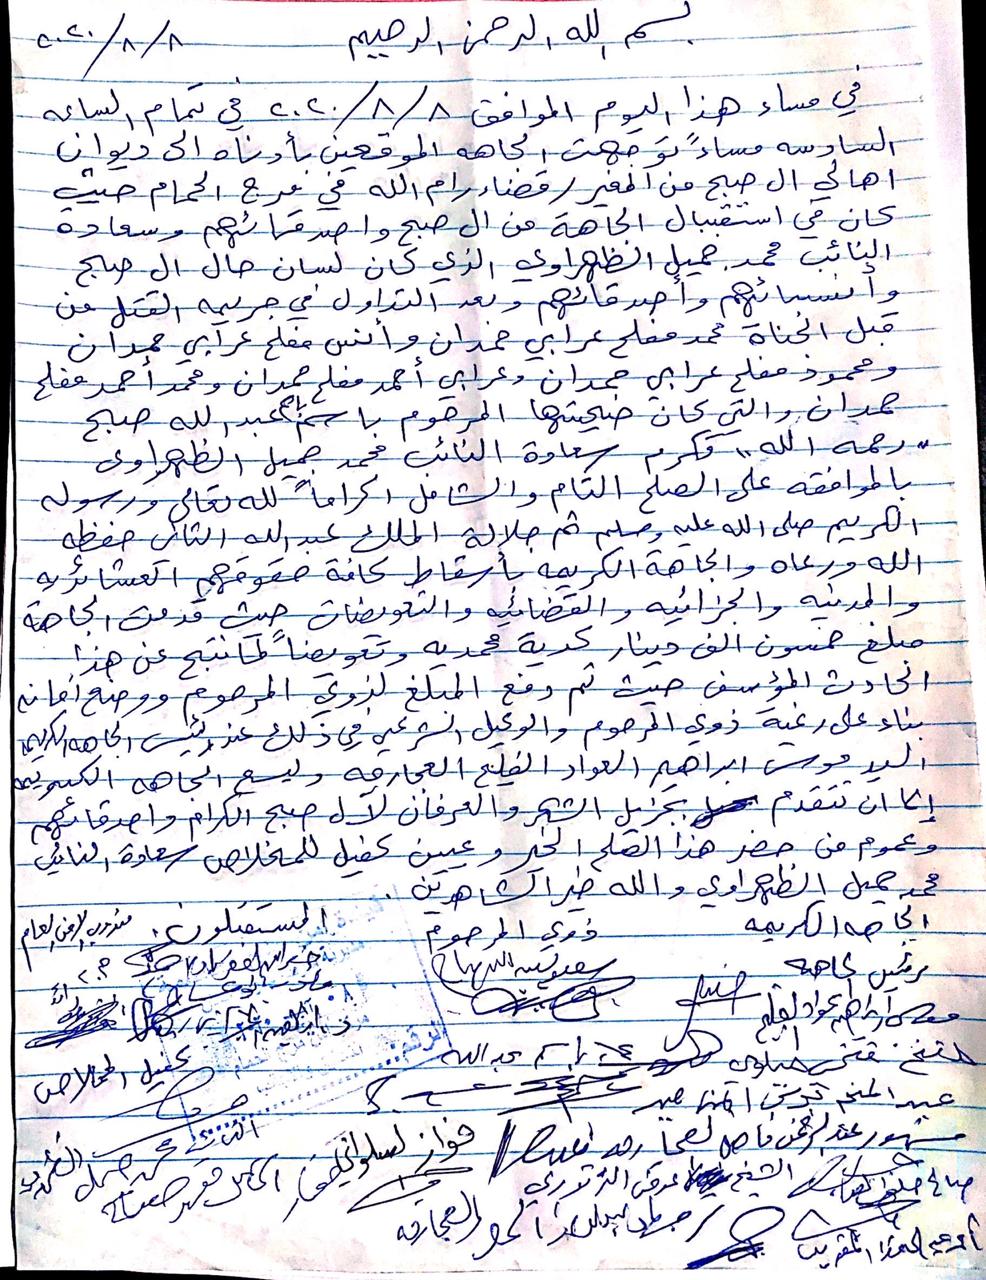 بسم الله الرحمن الرحيم ٢٠٢٠/٨/٨
في مساء هذا اليوم الموافق ٢٠٢٠/٨/٨ في تمام الساعه
السادسه مساءً توجهت الجاهه الموقعين بأدناه الى ديوان
اهالي ال صبح من المغير / قضاء رام الله في مرج الحمام حيث
كان في استقبال الجاهة من ال صبح واصدقائهم وسعادة
النائب محمد جميل الظهراوي الذي كان لسان حال ال صبح
وأنسبائهم وأصدقائهم وبعد التداول في جريمه القتل من
قبل الجناة محمد مفلح عرابي حمدان وأنس مفلح عرابي حمدان
ومحمود مفلح عرابي حمدان وعرابي أحمد مفلح حمدان ومحمد أحمد مفلح
حمدان والتي كان ضحيتها المرحوم باسم عبد الله صبح
"رحمه الله" فكرم سعادة النائب محمد جميل الظهراوي
بالموافقه على الصلح التام والشامل اكراماً لله تعالى ورسوله
الكريم صلى الله عليه وسلم ثم جلالة الملك عبد الله الثاني حفظه
الله ورعاه والجاهة الكريمه بأسقاط كافة حقوقهم العشائريه
والمدنيه والجزائيه والقضائيه والتعويضات حيث قدمت الجاهة
مبلغ خمسون الف دينار كدية محمديه وتعويضاً لما نتج عن هذا
الحادث المؤسف حيث تم دفع المبلغ لذوي المرحوم ووضع أمانه
بناء على رغبة ذوي المرحوم والوكيل الشرعي في ذلك عند رئيس الجاهه الكريمه
السيد موسى ابراهيم العواد الفليح العجارمه وليسع الجاهه الكريمه
إلا ان تتقدم بجزيل الشكر والعرفان لآل صبح الكرام واصدقائهم
وعموم من حضر هذا الصلح الخير وعيين كفيل للمخلاص سعادة النائب
محمد جميل الظهراوي والله خير الشاهدين
الجاهه الكريمه ذوي المرحوم المستقبلون: مندوب الامن العام
رئيس الجاهه
كفيل المخلاص
باسم عبد الله
فواز
الشيخ
العجارمه